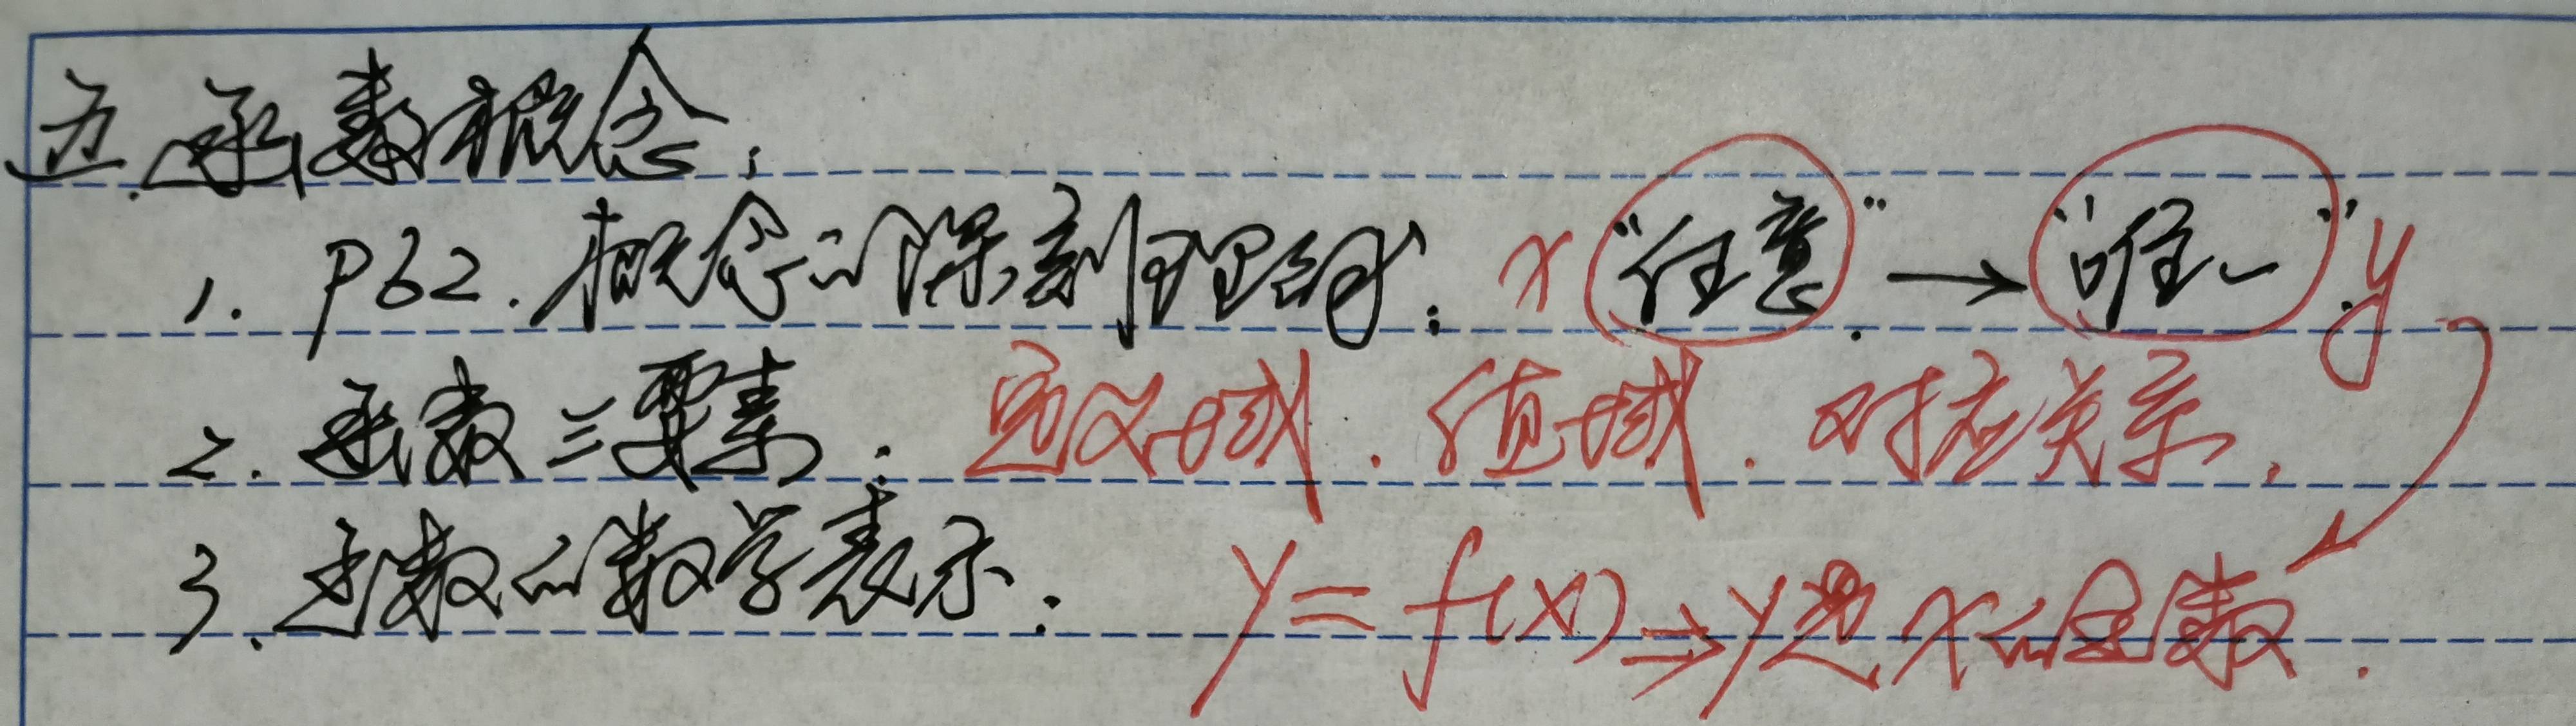 五.函数概念：
1. P62. 概念的深刻理解：x “任意” → “唯一” y
2. 函数三要素：定义域. 值域. 对应关系.
3. 函数的数学表示： y = f(x) ⇒ y是x的函数.